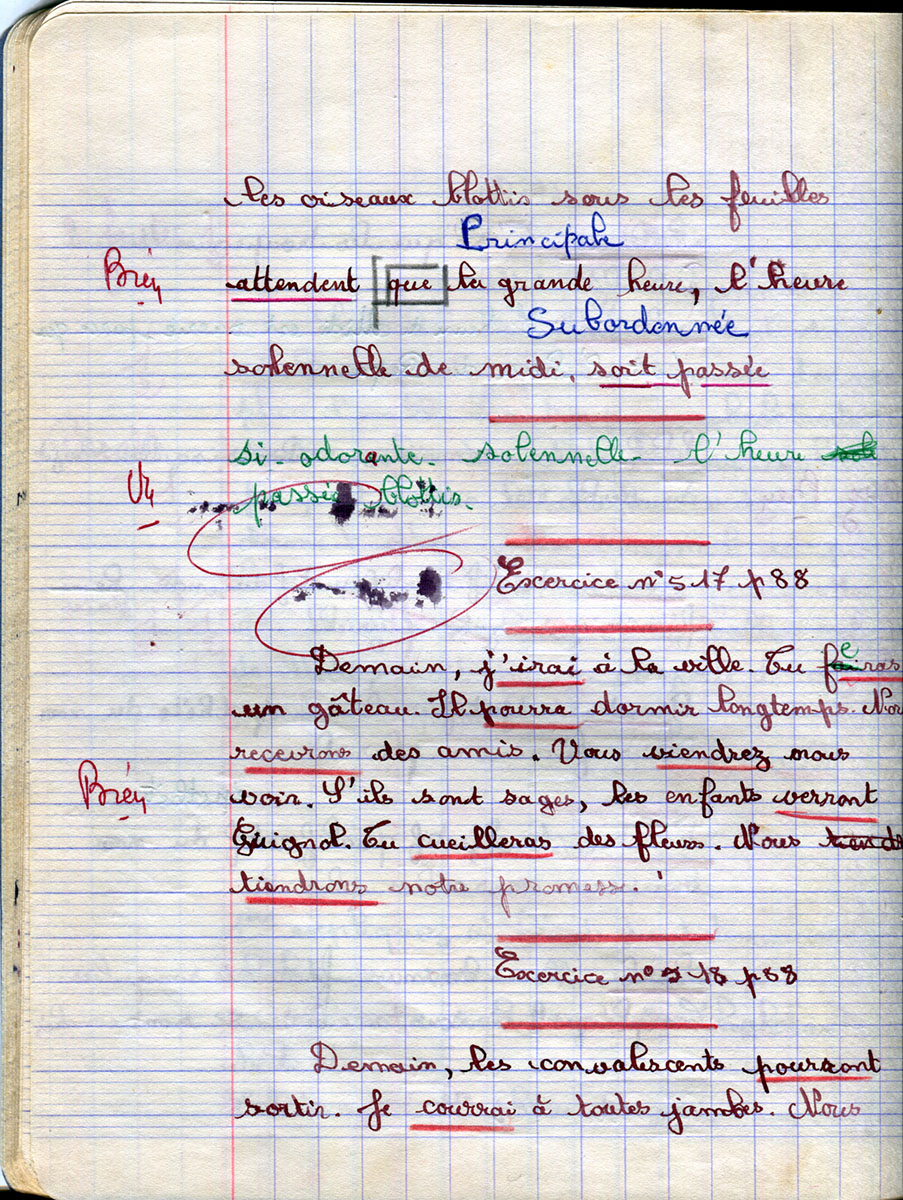 les oiseaux blottis sous les feuilles
Principale
Bien
attendent que la grande heure, l'heure
Subordonnée
solennelle de midi, soit passée
si - odorante - solennelle - l'heure
Vu
passée blottis.
Exercice n° 517 p 88
Demain, j'irai à la ville. Tu feras
un gâteau. Il pourra dormir longtemps. Nou
recevrons des amis. Vous viendrez nous
Bien
voir. S'ils sont sages, les enfants verront
Guignol. Tu cueilleras des fleurs. Nous
tiendrons notre promess.
Exercice n° 518 p 88
Demain, les convalescents pourront
sortir. Je courrai à toutes jambes. Nous